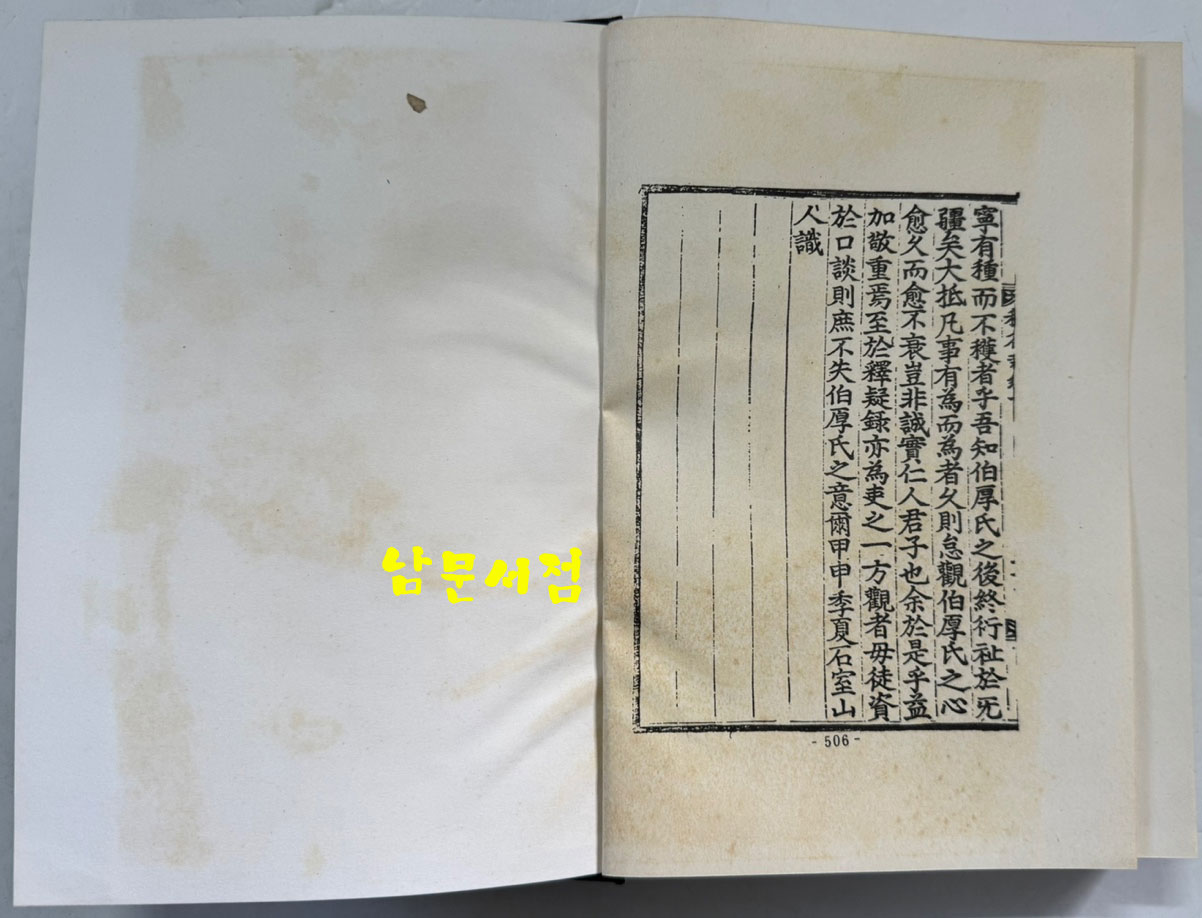 寧有種而不穫者乎吾知伯厚氏之後終衍祉於无
疆矣大抵凡事有為而為者久則怠觀伯厚氏之心
愈久而愈不衰豈非誠實仁人君子也余於是乎益
加敬重焉至於釋疑錄亦為吏之一方觀者毋徒資
於口談則庶不失伯厚氏之意爾甲申季夏石室山
人識
- 506 -
남문서점